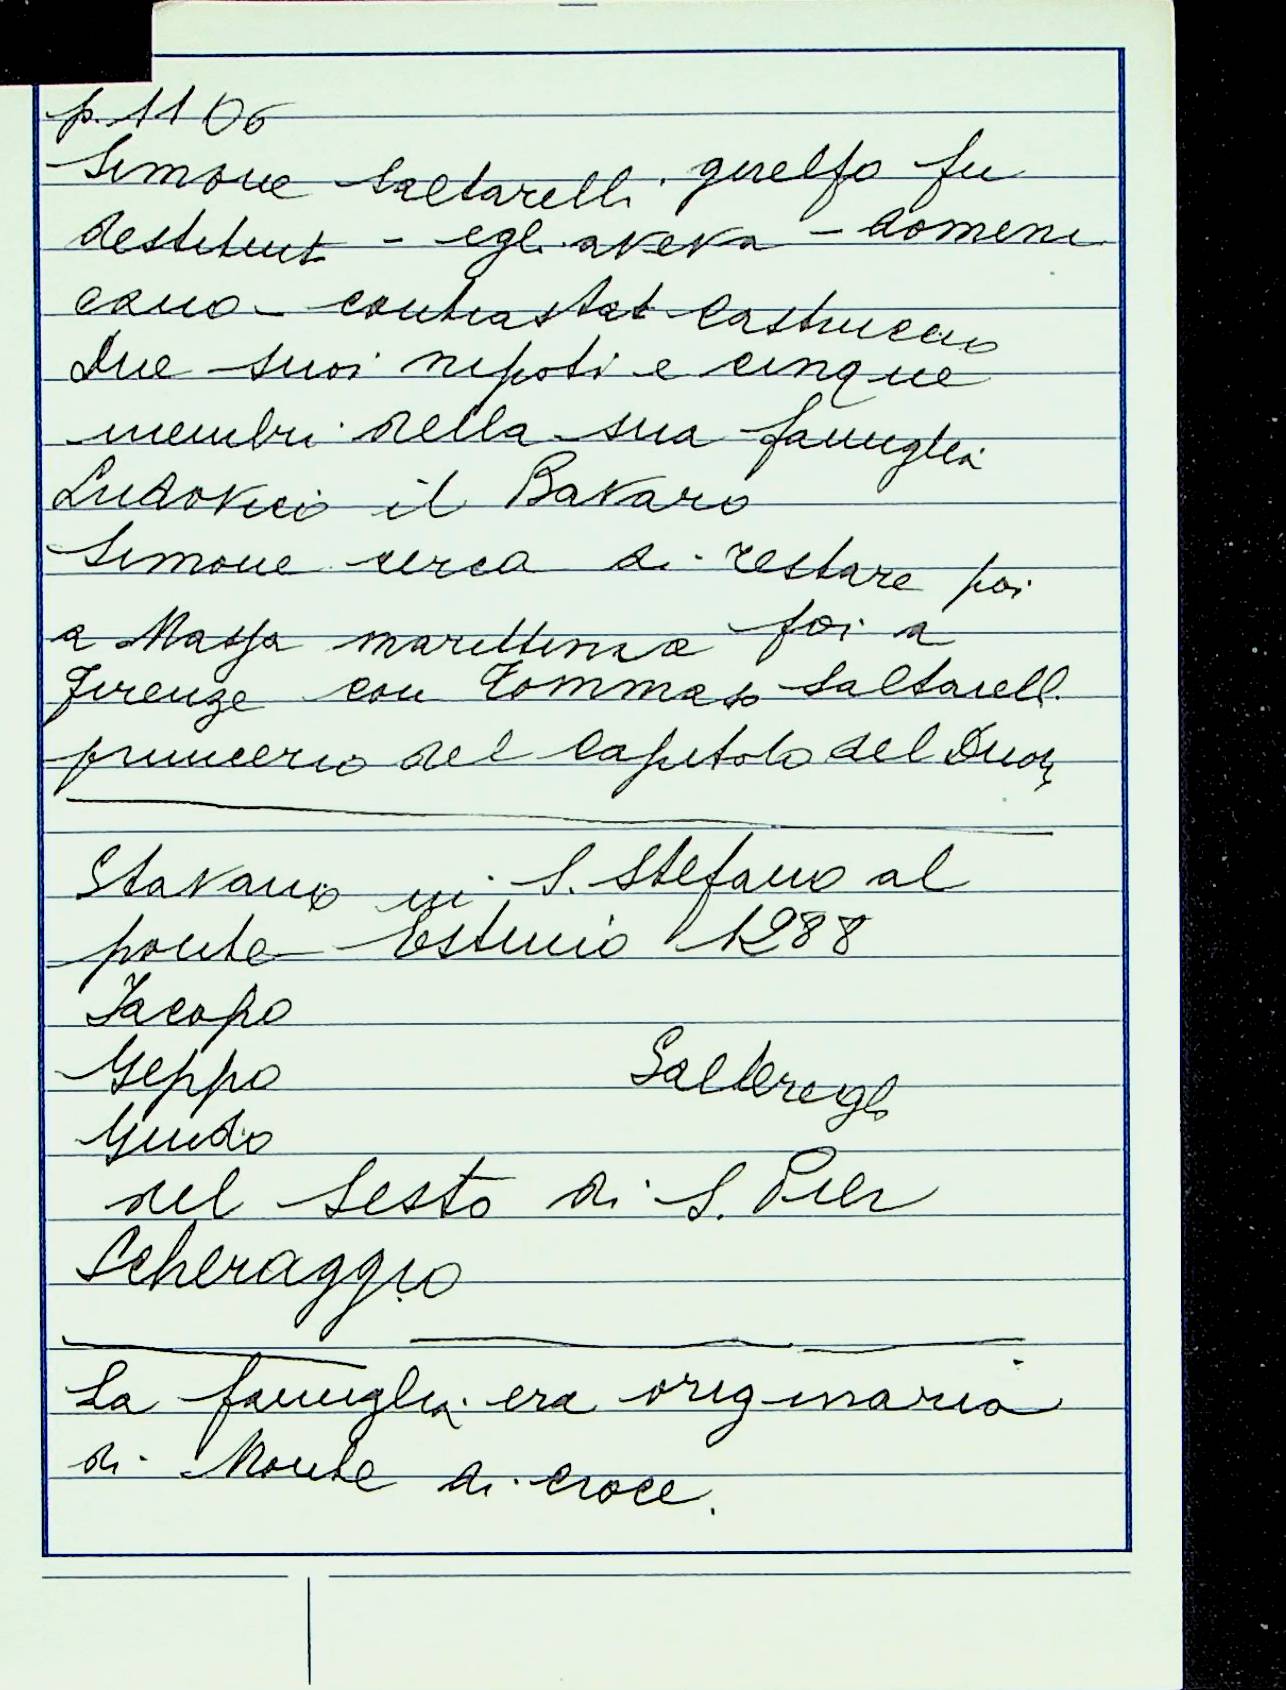 p. 1106
Simone Saltarelli guelfo fu
destituit - egli aveva - domeni
cano - contrastat Castruccio
Due suoi nipoti e cinque
membri della sua famiglia
Ludovico il Bavaro
Simone cerca di restare poi
a Massa marittima poi a
Firenze con Tommaso Saltarelli
primicerio del Capitolo del Duom
Stavano in S. Stefano al
ponte Estimo 1288
Jacopo
Geppo Salteregli
Guido
del Sesto di S. Pier
Scheraggio
La famiglia era originaria
di Monte di Croce.